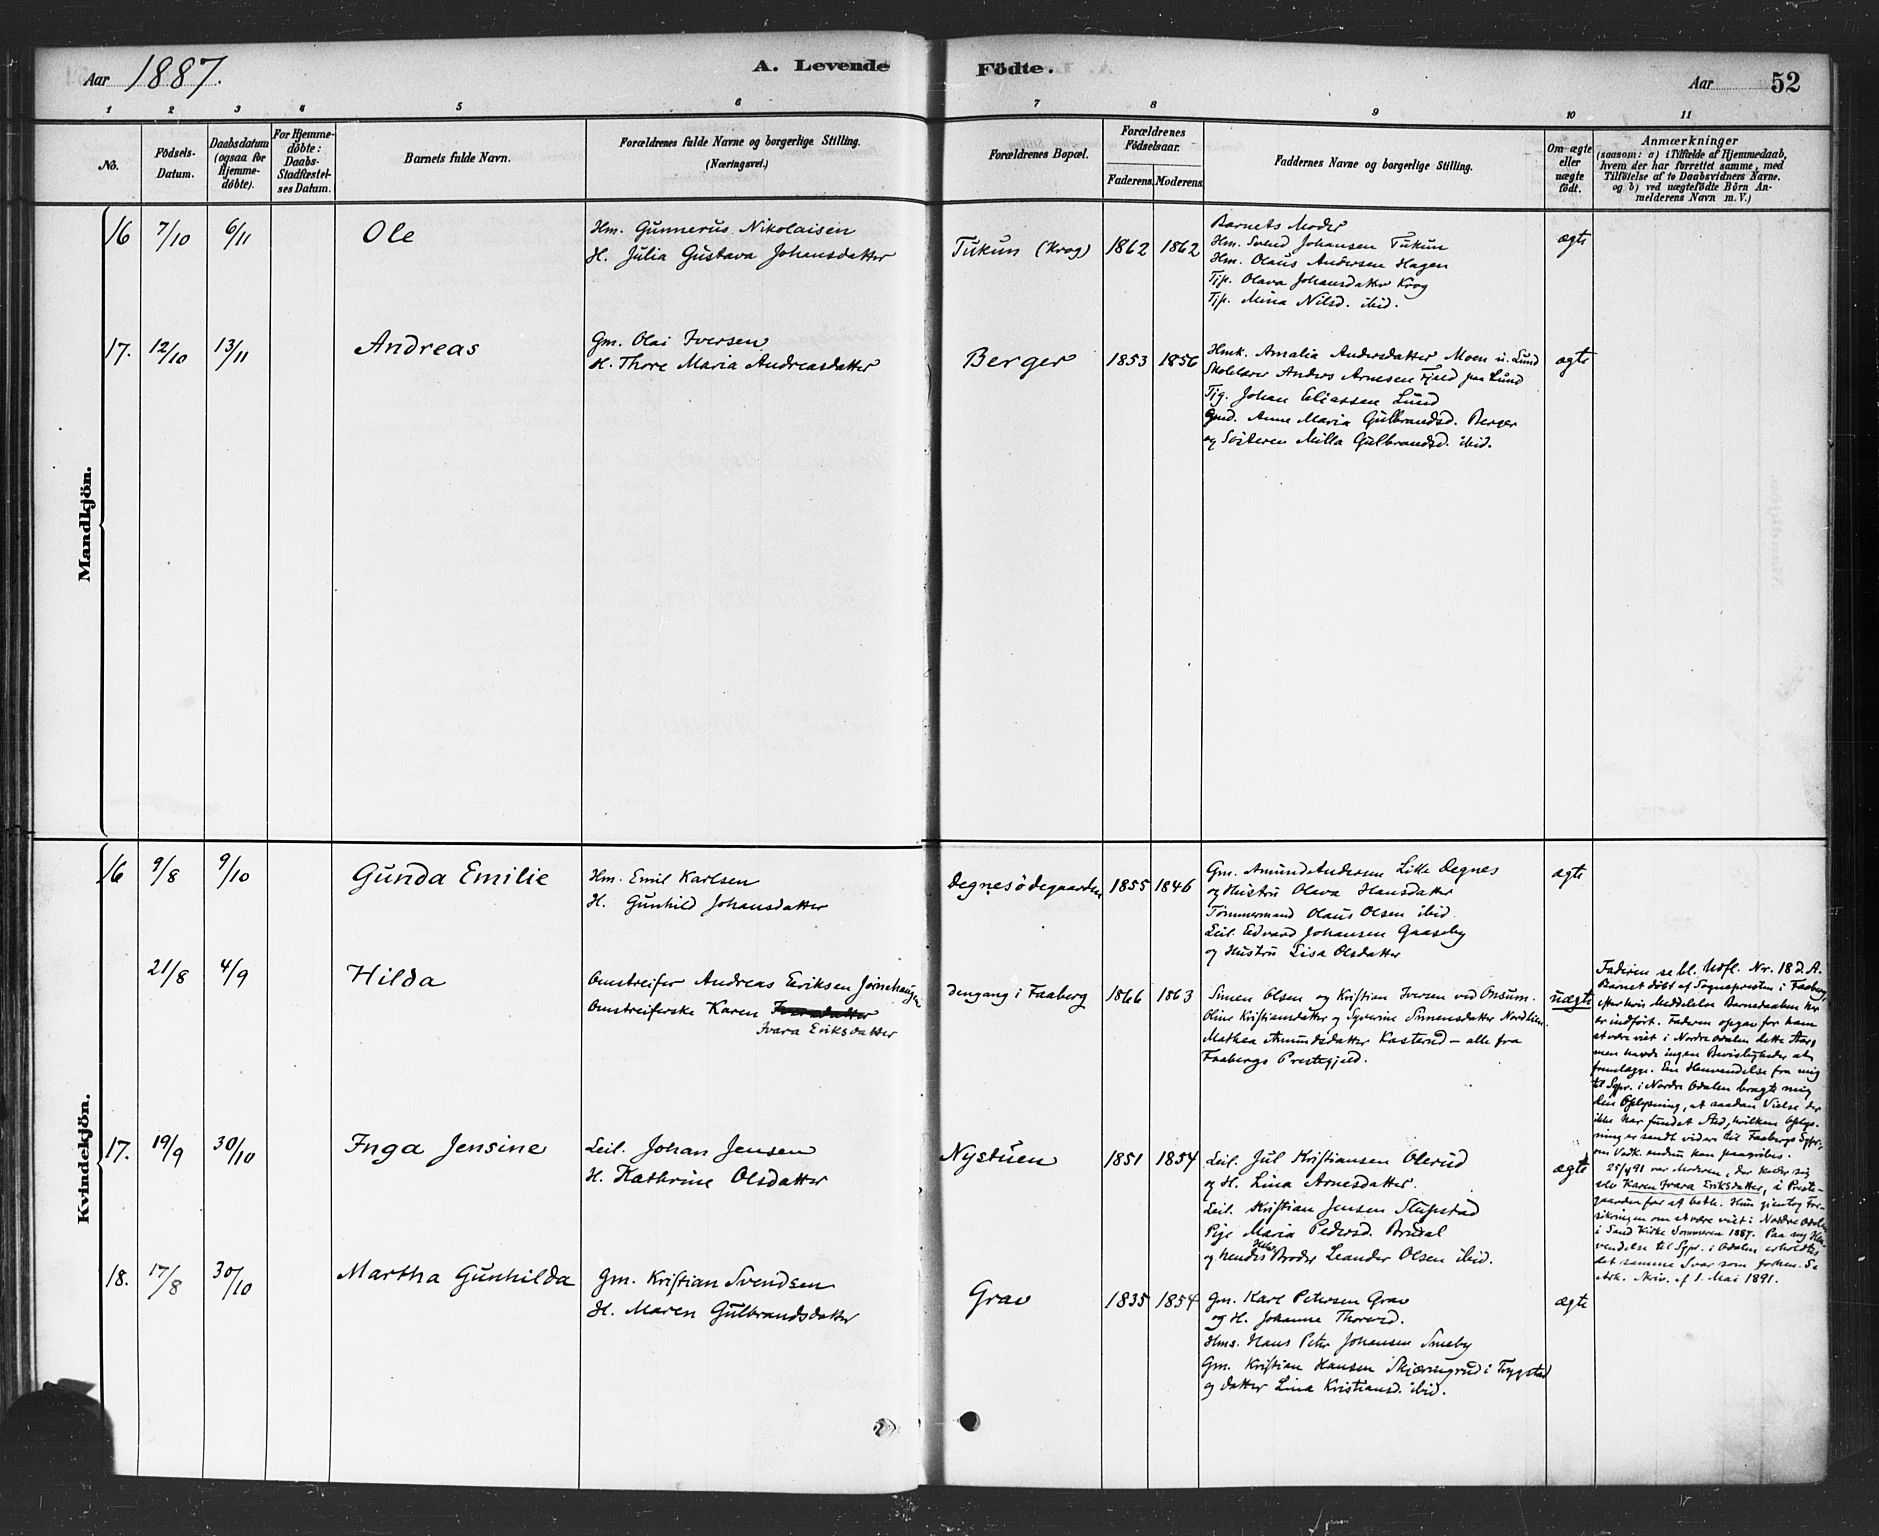 Aar 1887.
A. Levende
Födte.
Aar 52
1 2 3 4 5 6 7 8 9 10 11
Nô.
Födsels-
Datum.
Daabsdatum
(ogsaa for
Hjemme-
döbte).
For Hjemme-
döbte:
Daabs-
Stadfæstel-
ses Datum.
Barnets fulde Navn.
Forældrenes fulde Navne og borgerlige Stilling.
(Næringsvei.)
Forældrenes Bopæl.
Forældrenes
Födselsaar.
Faderens. Moderens.
Faddernes Navne og borgerlige Stilling.
Om ægte
eller
uægte
födt.
Anmærkninger
(saasom: a) i Tilfælde af Hjemmedaab,
hvem der har forrettet samme, med
Tilföielse af to Daabsvidners Navne.
og b) ved uægtefödte Börn An-
melderens Navn m. V.)
Mandkjön.
16 7/10 6/11 Ole
Hm. Gunnerus Nikolaisen
H. Julia Gustava Johansdatter
Tukun (Krog) 1862 1862
Barnets Moder
Hm. Svend Johansen Tukun
Hm. Olaus Andersen Hagen
Tjp. Olava Johansdatter Krog
Tjp. Mina Nilsd. ibid.
ægte
17. 12/10 13/11 Andreas
Gm. Olai Iversen
H. Thore Maria Andreasdatter
Berger 1853 1856
Hmk. Amalia Andersdatter Moen u. Lund
Skolelærer Anders Arnesen Fjeld paa Lund
Tjg. Johan Eliassen Lund
Gmd. Anne Maria Gulbrandsd. Berger
og Søsteren Milla Gulbrandsd. ibid.
ægte
Kvindekjön.
16 9/8 9/10 Gunda Emilie
Hm. Emil Karlsen
H. Gunhild Johansdatter
Degnesødegaarden 1855 1846
Gm. Amund Andersen Lille Degnes
og Hustru Olava Hansdatter
Tømmermand Olaus Olsen ibid.
Leil. Edvard Johansen Gaaseby
og Hustru Lisa Olsdatter
ægte
21/8 4/9 Hilda
Omstreifer Andreas Eriksen Jørnehaugen
Omstreiferske Karen Iversdatter
Ivara Eriksdatter
dengang i Faaberg 1866 1863
Simen Olsen og Kristian Iversen ved Onsum.
Oline Kristiansdatter og Syverine Simensdatter Nordlien.
Mathea Amundsdatter Kasterud – alle fra
Faabergs Prestegjeld.
uægte
Faderen se bl. Udfl. Nr. 18 d. A.
Barnet døbt af Sognepresten i Faaberg,
efter hvis Meddelelse Barnedaaben her
er indført. Faderen opgav for ham
at være viet i Nordre Odalen dette Aar,
men havde ingen Bevisligheder at
fremlægge. En Henvendelse fra mig
til Sgpr. i Nordre Odalen bragte mig
den Oplysning, at saadan Vielse der
ikke har fundet Sted, hvilken Oplys-
ning er sendt videre til Faabergs Sgpr.,
om Vedk. endnu kan paagribes.
25/4 91 var Moderen, der kalder sig
selv Karen Ivara Eriksdatter, i Preste-
gaarden for at betle. Hun gjentog For-
sikringen om at være viet i Nordre Odalen
i Sand Kirke Sommeren 1887. Paa ny Hen-
vendelse til Sgpr. i Odalen erholdtes
det samme Svar som forhen. Se
Ark. Skriv. af 1. Mai 1891.
17. 19/9 30/10 Inga Jensine
Leil. Johan Jensen
H. Kathrine Olsdatter
Nystuen 1851 1854
Leil. Jul Kristiansen Olerud
og H. Lina Arnesdatter.
Leil. Kristian Jensen
Pige Maria Pedersd.
og hendes Halv Broder Leander Olsen ibid.
ægte
18. 17/8 30/10 Martha Gunhilda
Gm. Kristian Svendsen
H. Maren Gulbrandsdatter
Grav 1835 1854
Gm. Karl Petersen Grav
og H. Johanne Thorsd.
Hms. Hans Peter Johansen Smeby
Gm. Kristian Hansen Skjærengrud i Trygstad
og datter Lina Kristiansd. ibid.
ægte